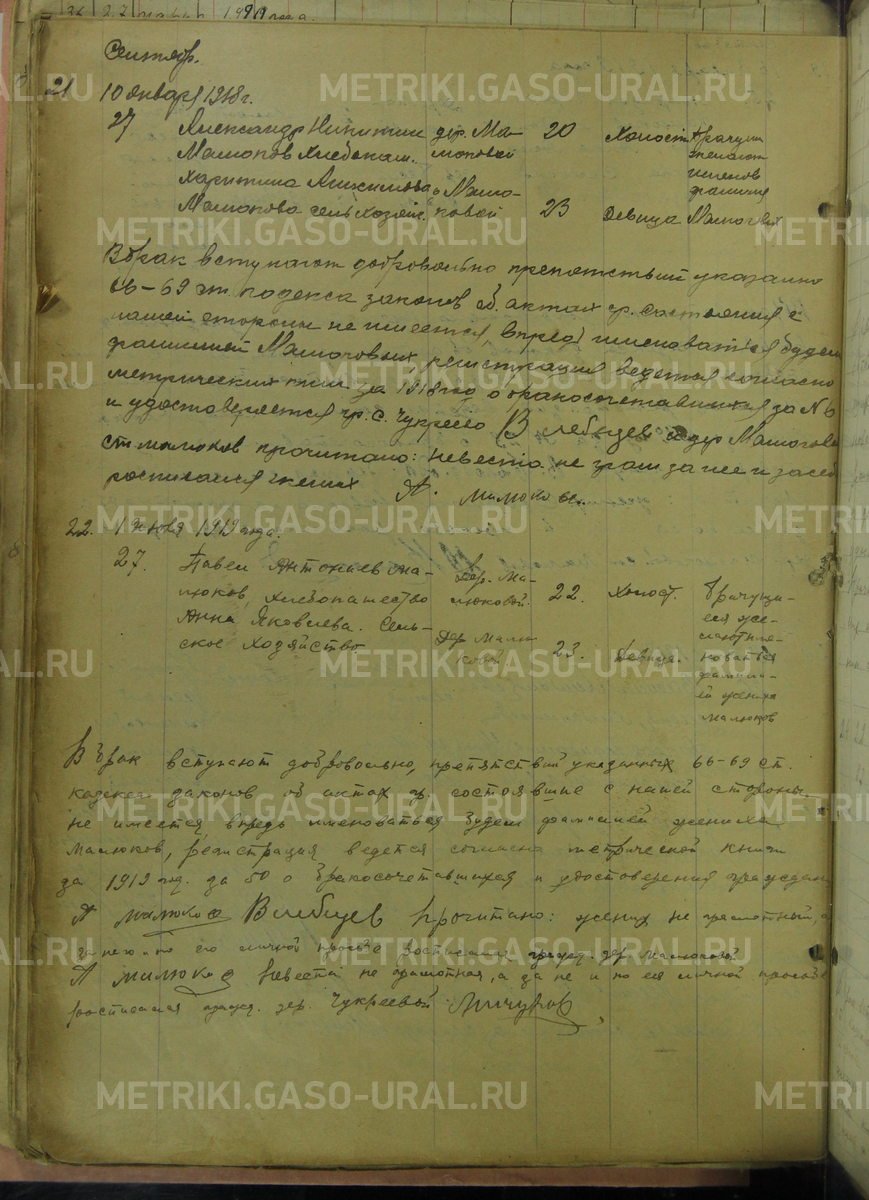 1919 года.
Сентябр.
21 10 января 1918 г.
27 Александр Никитин дер. Ма- 20 Холост Брачущ
Малюков Хлебопаш. люковой желают
Харитина именов
Малюкова сельхозяй. ковой 23 Девица Малюковых
В брак вступают добровольно препятствий указанно
66-69 ст кодекса законов об. актах гр. состояния с
нашей стороны не имеется, впредь именоваться будем
фамилией Малюковых, регистрация ведется согласно
метрических книг за 1918 год о бракосочетавшихся за № 6
и удостоверяется гр. с. Чукреево В Лебедев дер Малюкова
прочитано: невеста не грам за нее и засеб
росписался жених А. Малюков
22. 1 Июня 1919 года.
27. Павел Антонаев Ма- Дер. Ма- 22. Холост. Брачущи-
люков, хлебопашество люковой. еся же-
Анна Яковлева. Сель- лают име-
ское хозяйство Дер Малю- 23. Девица. новатся
ковой фамили-
ей жениха
Малюков
В брак вступают добровольно, препятствий указанных 66-69 ст.
кодекса законов об актах гр состоявшие с нашей стороны
не имеется, впредь именоваться будем фамилией жениха
Малюков, регистрация ведется согласно метрической книги
за 1919 год. за 50 о бракосочетавшихся и удостоверения граждан
А Малюков В Лебедев Прочитано: жених не грамотный, а
за него и по его личной просьбе росписался гражд. дер. Малюковой
А Малюков Невеста не грамотная, а за не и по ея личной просьбе
росписался гражд. дер. Чукреевой Мичуров
METRIKI.GASO-URAL.RU